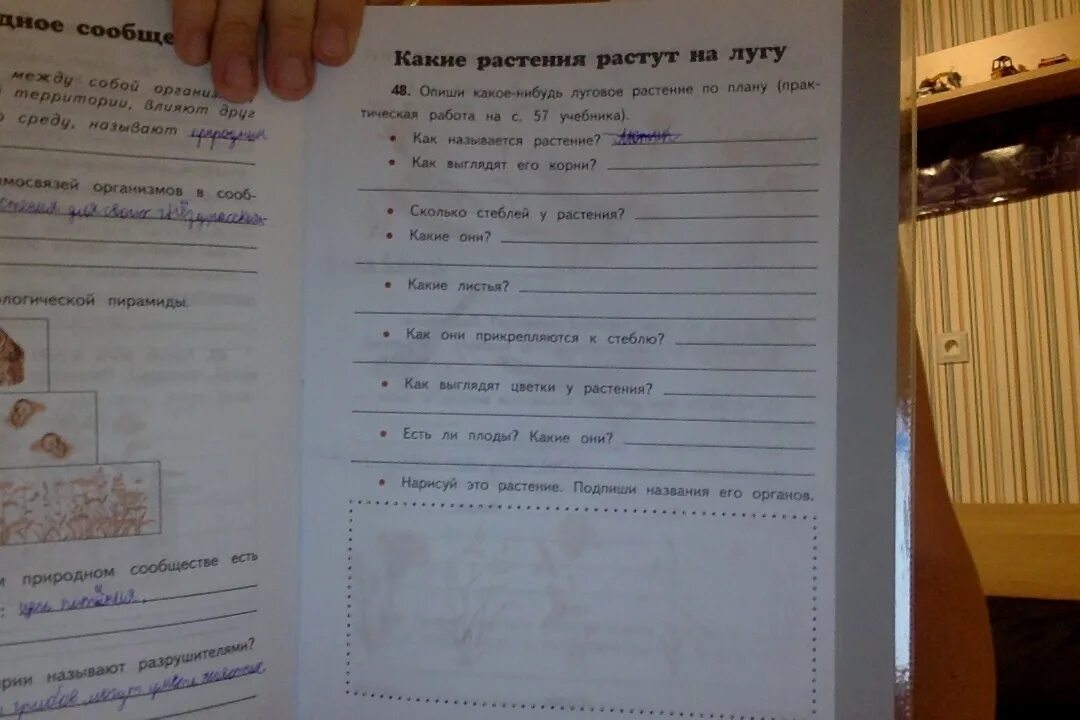 дное сообще
между собой органи
территории, влияют друг
среду, называют природным
мосвязей организмов в сооб-
ологической пирамиды.
м природном сообществе есть
: цепи питания.
рии называют разрушителями?
грибов могут
Какие растения растут на лугу
48. Опиши какое-нибудь луговое растение по плану (прак-
тическая работа на с. 57 учебника).
• Как называется растение? Лютик
• Как выглядят его корни?
• Сколько стеблей у растения?
• Какие они?
• Какие листья?
• Как они прикрепляются к стеблю?
• Как выглядят цветки у растения?
• Есть ли плоды? Какие они?
• Нарисуй это растение. Подпиши названия его органов.